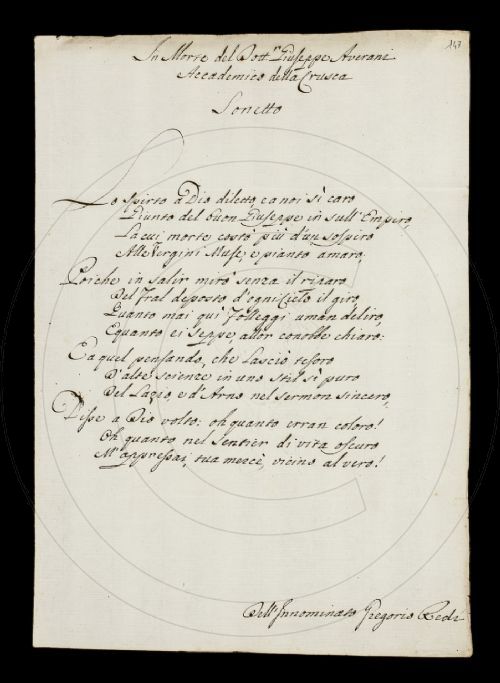 147
In Morte del Dott.r Giuseppe Averani
Accademico della Crusca
Sonetto
Lo spirto a Dio diletto, e a noi sì caro
Giunto del buon Giuseppe in sull'Empiro,
La cui morte costò più d'un sospiro
Alle Vergini Muse, e pianto amaro;
Poiche in salir mirò senza il riparo
Del fral deposto d'ogni Cielo il giro,
Quanto mai qui folleggi uman deliro,
E quanto ei seppe, allor conobbe chiaro:
E a quel pensando, che lasciò tesoro
D'alte scienze in uno stil sì puro
Del Lazio e d'Arno nel sermon sincero,
Disse a Dio volto: oh quanto erran coloro!
Oh quanto nel sentier di vita oscuro
M'appressai, tua mercè, vicino al vero!
Dell'Innominato Gregorio Redi